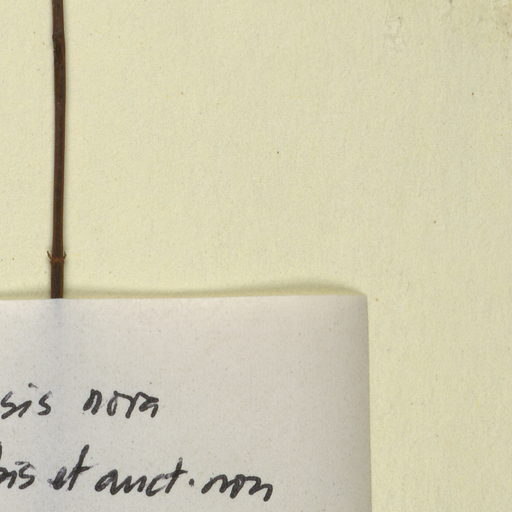 sis nova
bis et auct. non